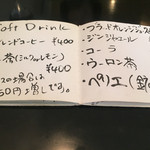 Soft Drink
ブレンドコーヒー ¥400
茶(ミルク or レモン)
¥400
の場合は
50円増しです。
・ブラッドオレンジジュース
・ジンジャエール
・コーラ
・ウーロン茶
・ペリエ